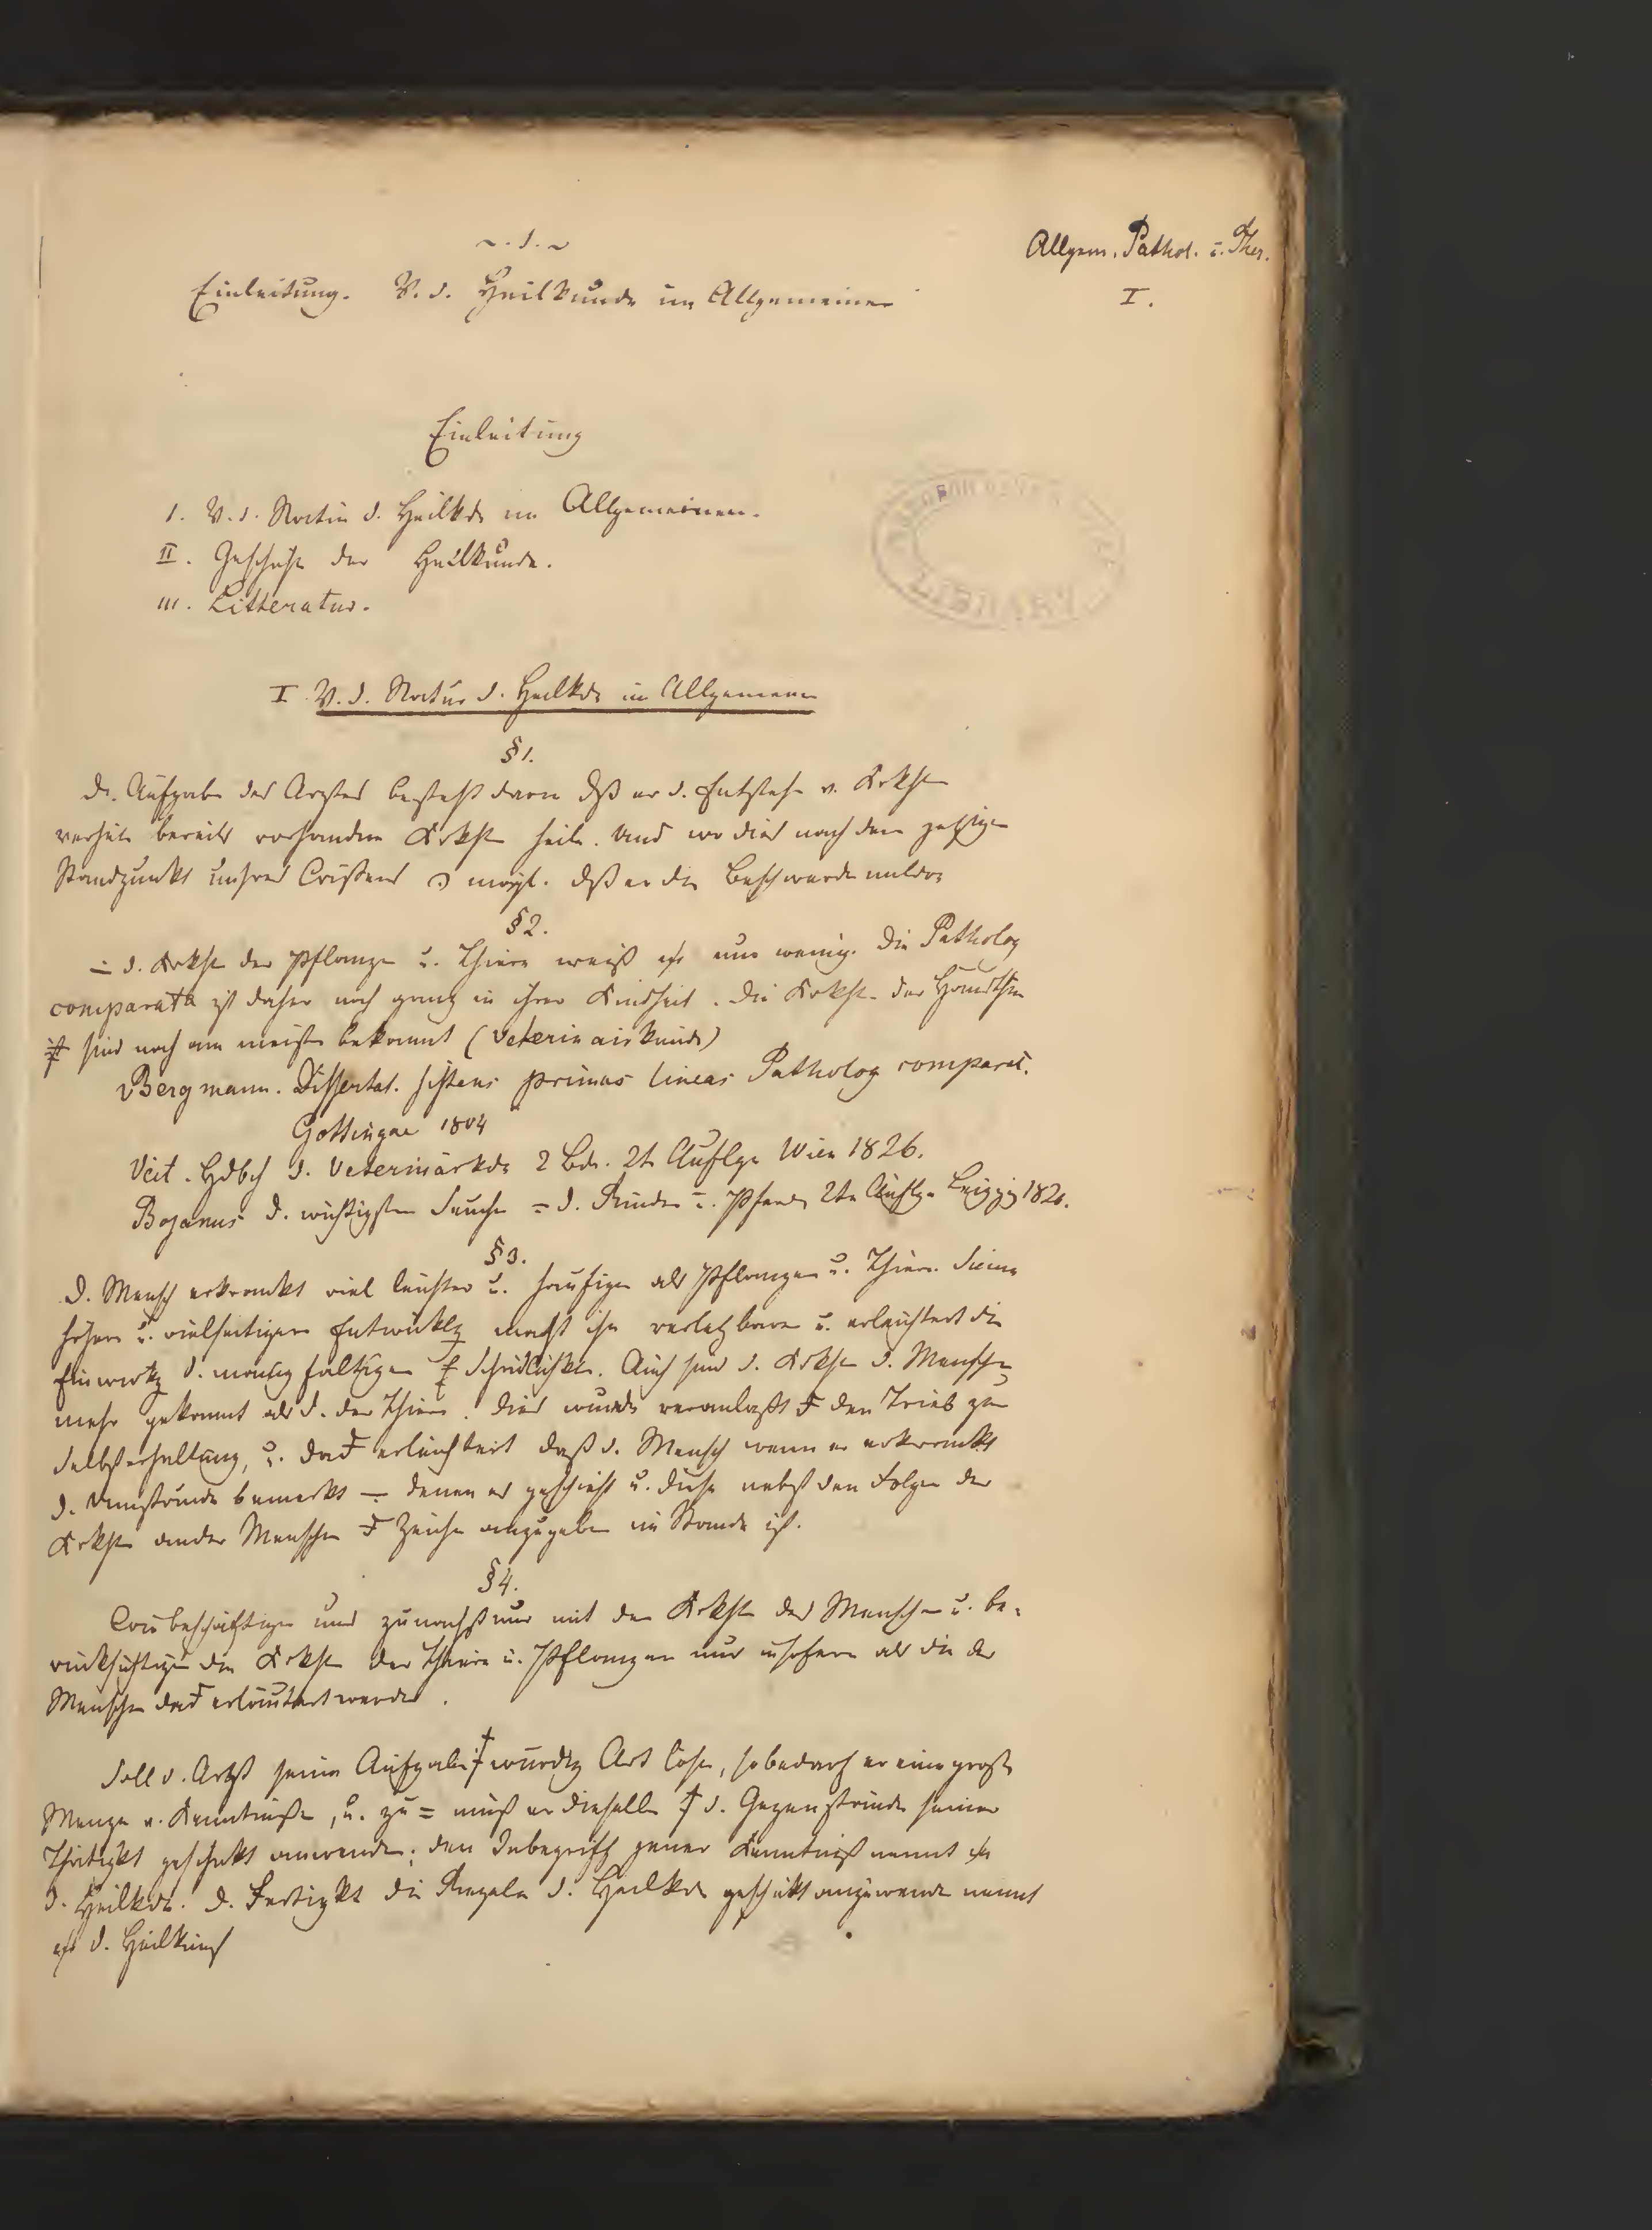 ~. 1. ~
Allgem. Pathol. u. Ther.
I.
Einleitung. V. d. Heilkunde im Allgemeinen
Einleitung
I. V. d. Natur d. Heilkde im Allgemeinen.
II. Geschichte der Heilkunde.
III. Litteratur.
LIBRARY
I V. d. Natur d. Heilkde im Allgemeinen
§ 1.
D. Aufgabe des Arztes besteht darin dß er d. Entstehn v. Krkht
verhüte bereits vorhandene Krkht heile. Und wo dies nach dem jetzigen
Standpunkt unsres Wissens mögl. dß er die Beschwerde mildre
§ 2.
d. Krkht der Pflanze u. Thiere weiß nur wenig. Die Patholog
comparata ist daher noch ganz in ihrer Kindheit. Die Krkht. der Hausthre
sind noch am meiste bekannt (Veterinairkunde)
Bergmann. Dissertat. sistens primas lineas Patholog comparat.
Gottingae 1804
Veit. Hdbch d. Veterinärkde 2 Bde. 2te Auflge Wien 1826.
Bojanus d. wichtigsten Seuche d. Rinder u. Pferde 2te Auflge Leipzig 1820.
§ 3.
D. Mensch erkrankt viel leichter u. haufiger als Pflanzen u. Thiere. Seine
höhere u. vielseitigere Entwicklg macht ihn verletzbarer u. erleichtert die
Einwirkg d. mannigfaltigen Schädlichktn. Auch sind d. Krkht d. Mensche
mehr gekannt als d. der Thiere. Dies wurde veranlaßt den Trieb zur
Selbsterhaltung, u. erleichtert daß d. Mensch wenn er erkrankt
d. Umstände bemerkt denen es geschieht u. diese nebst den Folgen der
Krkht ander Mensche Zeiche anzugeben im Stande ist.
§ 4.
Wir beschäftigen uns zunachst nur mit den Krkht des Mensche u. be-
rücksichtigen die Krkht der Thiere u. Pflanzen nur insofern als die der
Mensche erläutert werde.
Soll d. Arzt seine Aufgabe würdig Art löse, so bedarf er eine große
Menge v. Kenntniße, u. zu muß er dieselbe d. Gegenstände seiner
Thätigkt geschikt anwende; den Inbegriff jener Kenntniß nennt
d. Heilkde. D. Fertigkt die Regeln d. Heilkde geschikt anzuwende nennt
d. Heilkunst